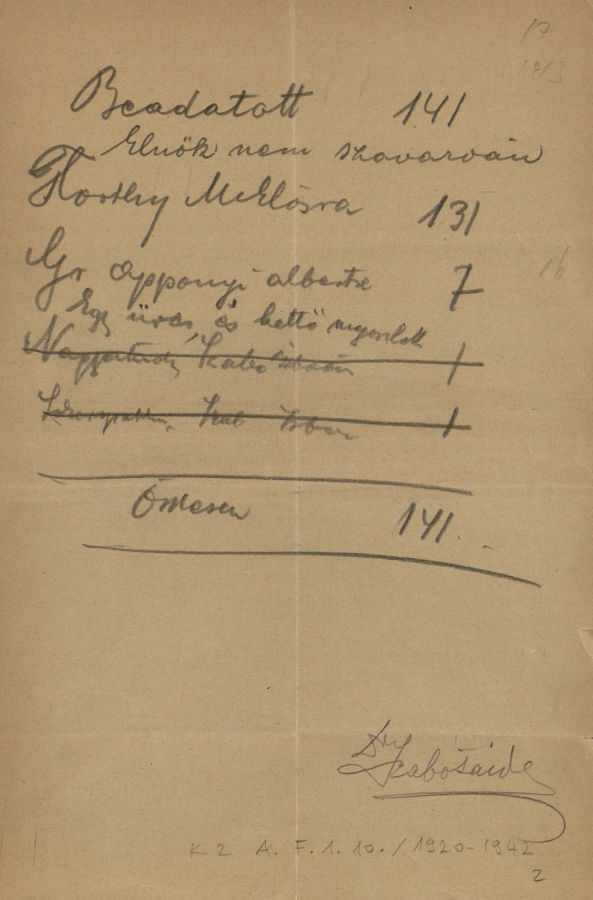 17
1913
Beadatott 141
Elnök nem szavazván
Horthy Miklósra 131
Gr Apponyi albertre 7
Egy üres és kettő
Nagyatádi Szabó István 1
1
Összesen 141
Dr Szabó
16
K 2 A. F. 1. 10. / 1920-1942
2